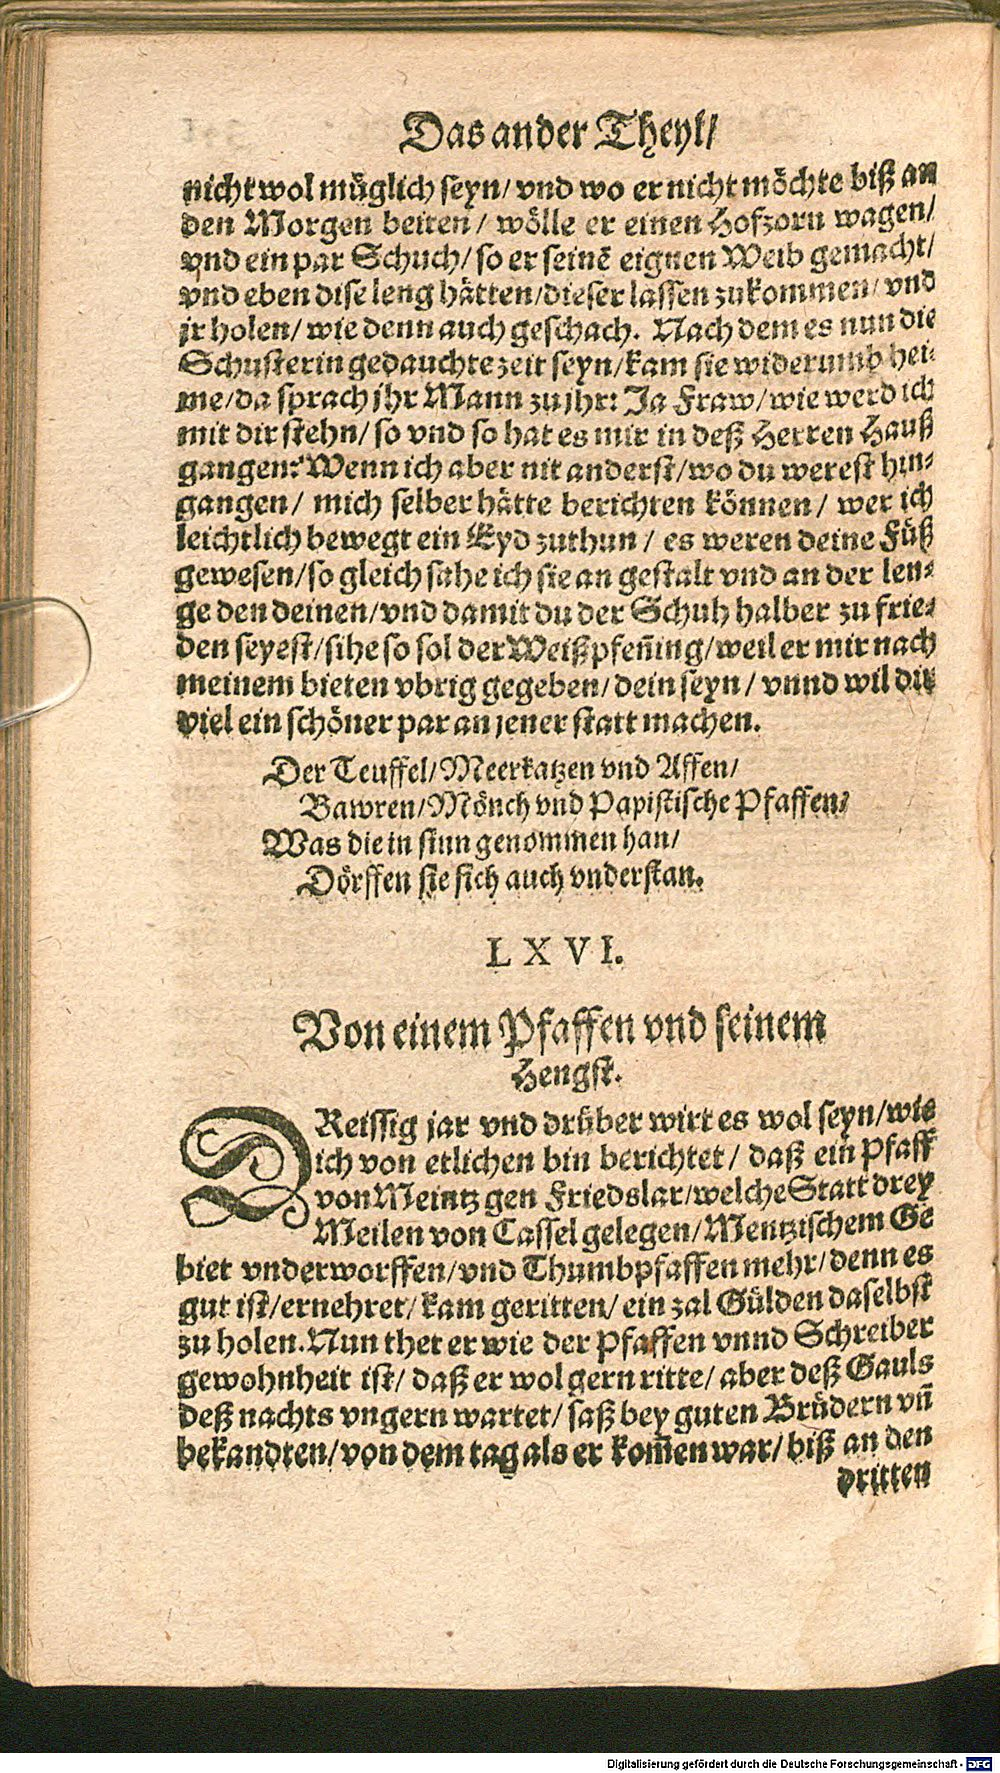 Das ander Theyl/
nicht wol müglich seyn/ vnd wo er nicht möchte biß an
den Morgen beiten/ wölle er einen Hofzorn wagen/
vnd ein par Schuch/ so er seinē eignen Weib gemacht/
vnd eben dise leng hätten/ dieser lassen zukommen/ vnd
jr holen/ wie denn auch geschach. Nach dem es nun die
Schusterin gedauchte zeit seyn/ kam sie widerumb hei⸗
me/ da sprach jhr Mann zu jhr: Ja Fraw/ wie werd ich
mit dir stehn/ so vnd so hat es mir in deß Herren Hauß
gangen: Wenn ich aber nit anderst/ wo du werest hin⸗
gangen/ mich selber hätte berichten können/ wer ich
leichtlich bewegt ein Eyd zuthun/ es weren deine Füß
gewesen/ so gleich sahe ich sie an gestalt vnd an der len⸗
ge den deinen/ vnd damit du der Schuh halber zu frie⸗
den seyest/ sihe so sol der Weißpfeñing/ weil er mir nach
meinem bieten vbrig gegeben/ dein seyn/ vnnd wil dir
viel ein schöner par an jener statt machen.
Der Teuffel/ Meerkatzen vnd Affen/
Bawren/ Mönch vnd Papistische Pfaffen/
Was die in sinn genommen han/
Dörffen sie sich auch vnderstan.
LXVI.
Von einem Pfaffen vnd seinem
Hengst.
DReissig jar vnd drüber wirt es wol seyn/ wie
ich von etlichen bin berichtet/ daß ein Pfaff
von Meintz gen Friedslar/ welche Statt drey
Meilen von Cassel gelegen/ Mentzischem Ge
biet vnderworffen/ vnd Thumbpfaffen mehr/ denn es
gut ist/ ernehret/ kam geritten/ ein zal Gülden daselbst
zu holen. Nun thet er wie der Pfaffen vnnd Schreiber
gewohnheit ist/ daß er wol gern ritte/ aber deß Gauls
deß nachts vngern wartet/ saß bey guten Brüdern vñ
bekandten/ von dem tag als er kom̃en war/ biß an den
dritten
Digitalisierung gefördert durch die Deutsche Forschungsgemeinschaft - DFG